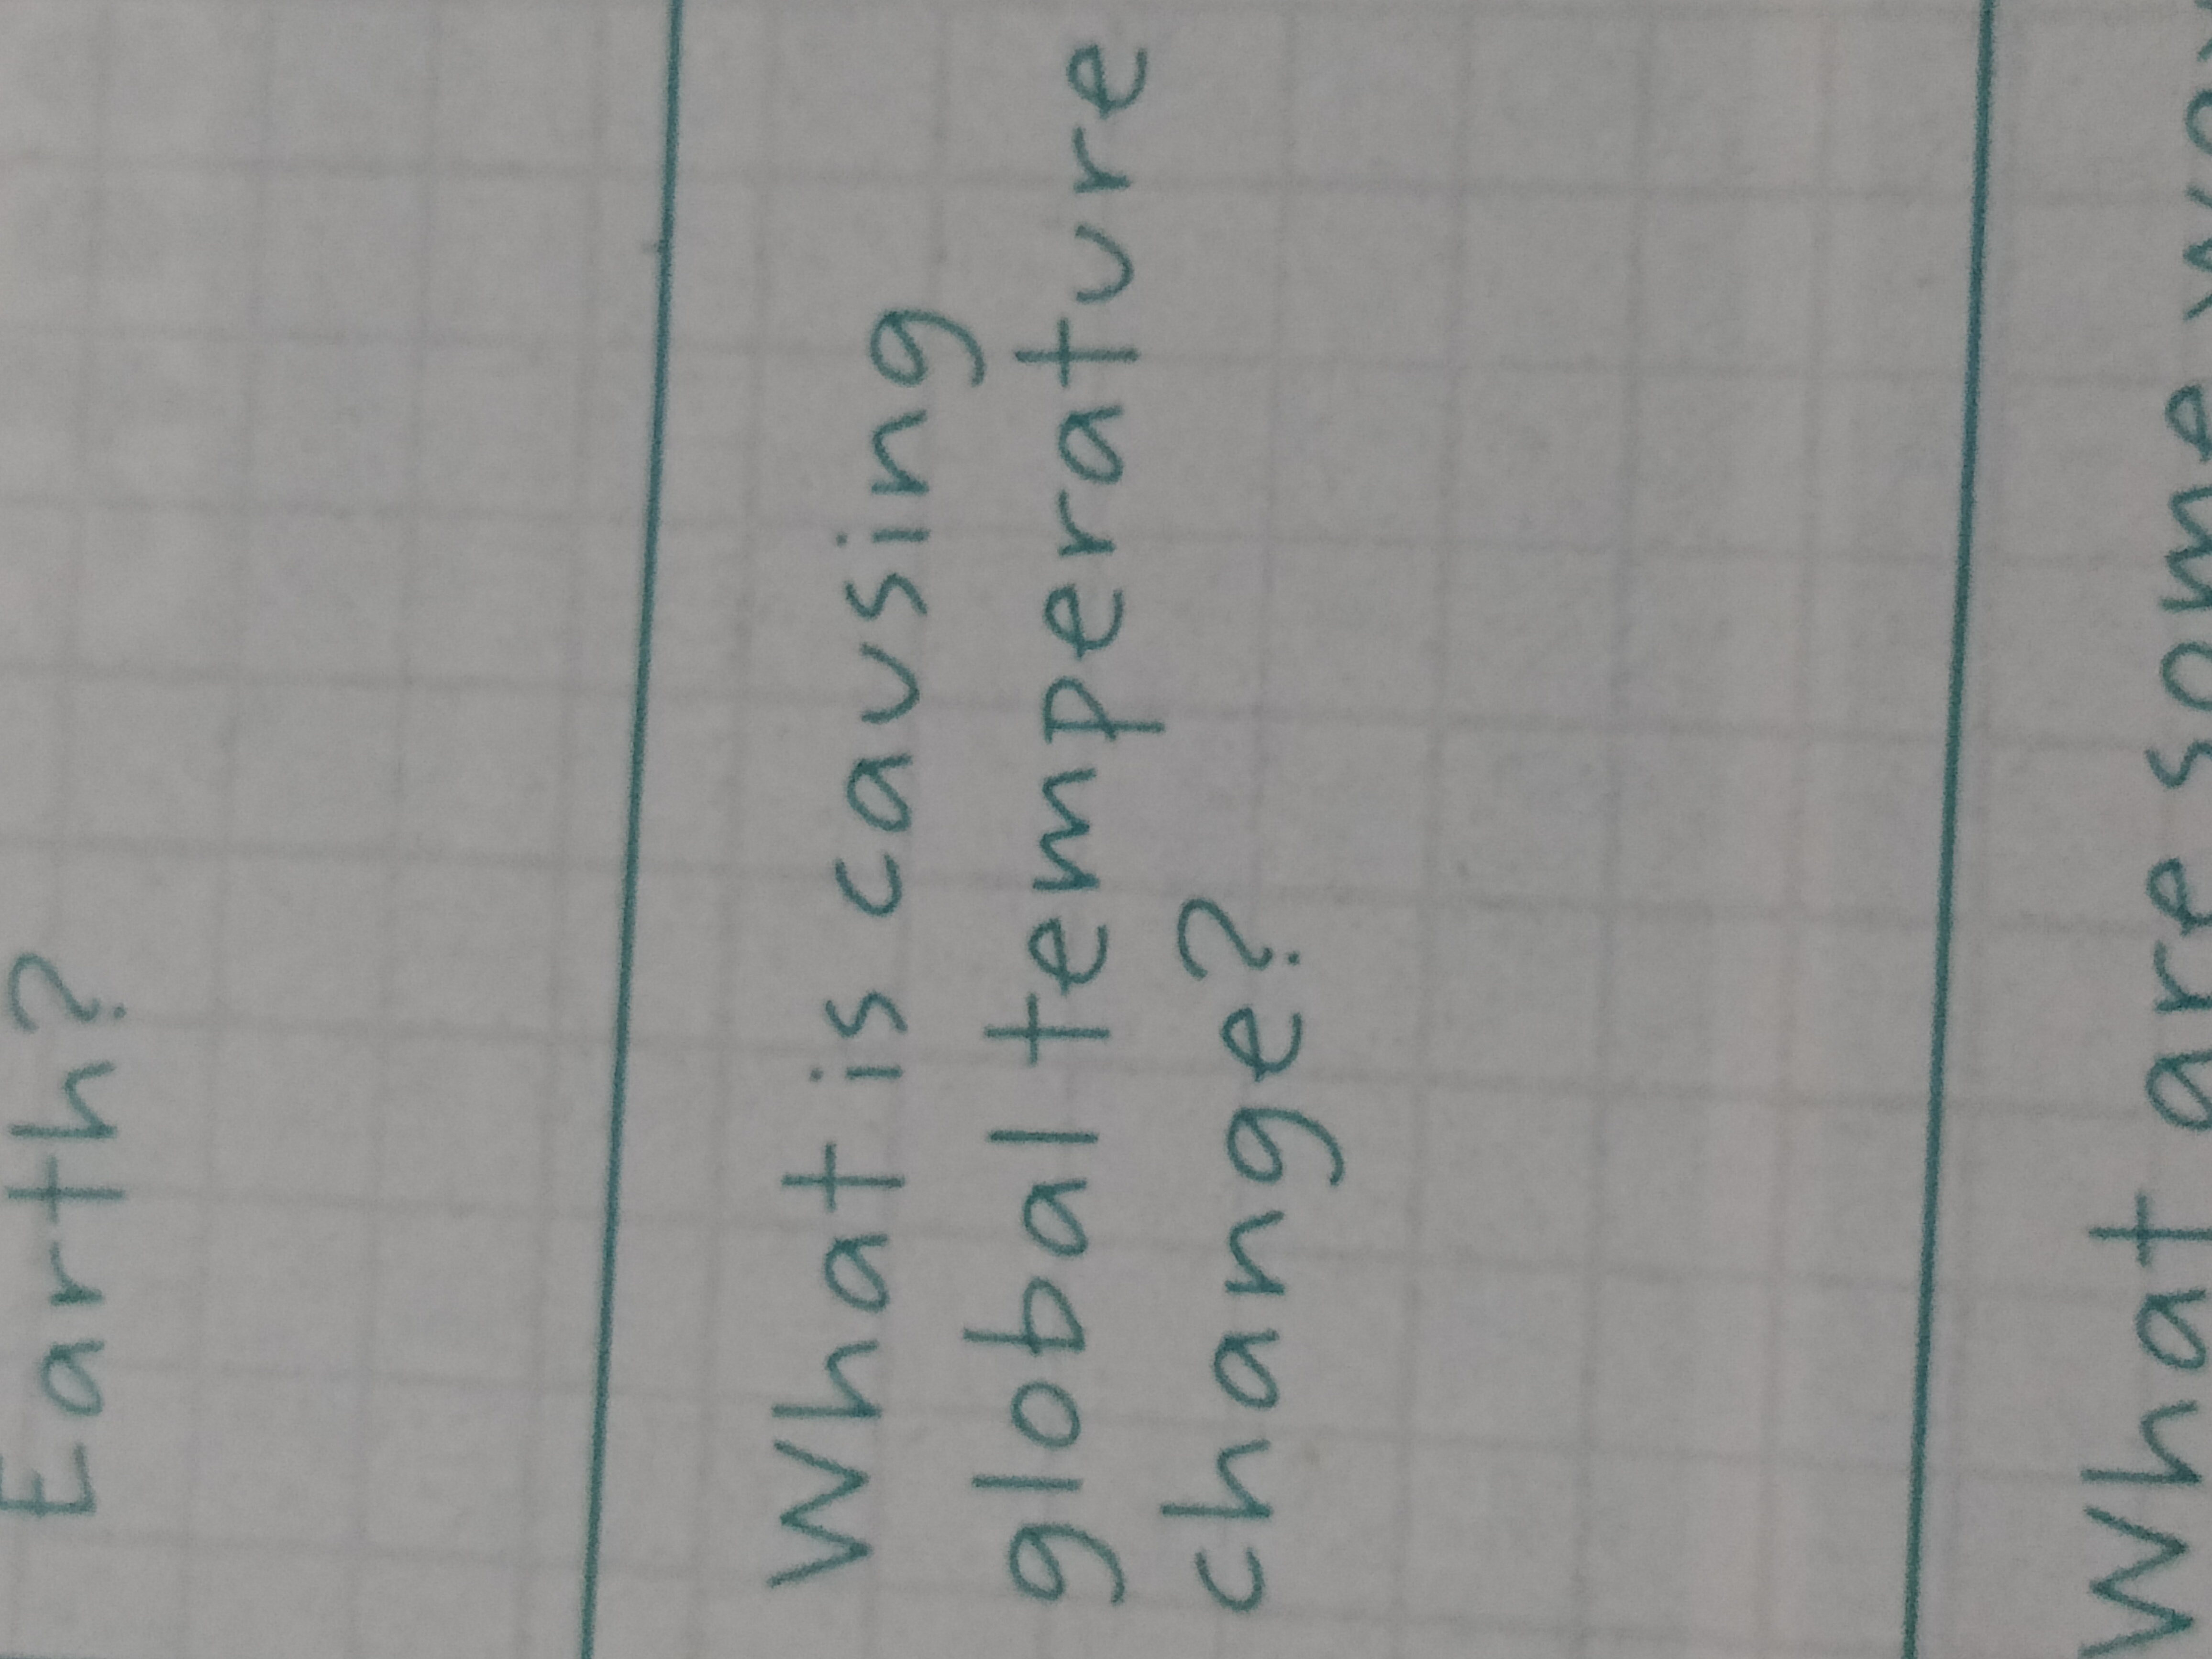 Earth?
What is causing
global temperature
change?
What are some